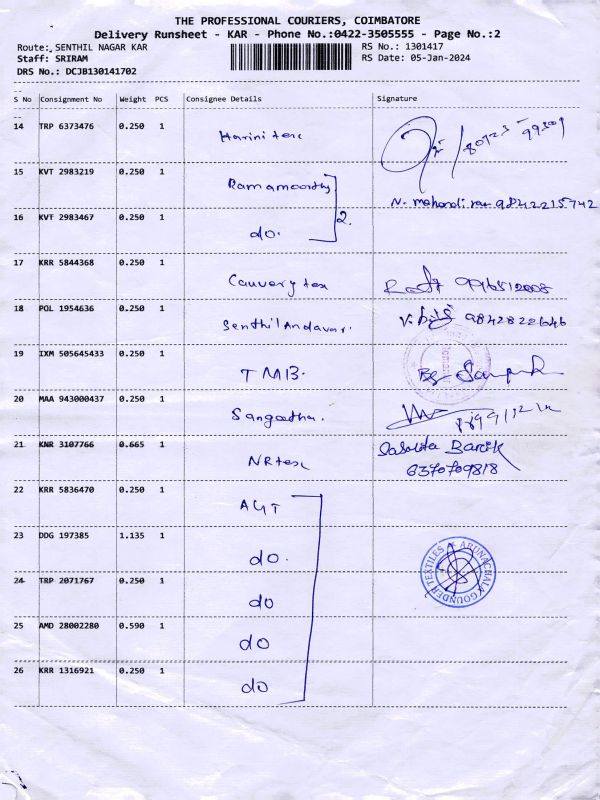 THE PROFESSIONAL COURIERS, COIMBATORE
Delivery Runsheet - KAR - Phone No.:0422-3505555 - Page No.:2
Route: SENTHIL NAGAR KAR RS No.: 1301417
Staff: SRIRAM RS Date: 05-Jan-2024
DRS No.: DCJB130141702
S No Consignment No Weight PCS Consignee Details Signature
14 TRP 6373476 0.250 1 Harini tex
15 KVT 2983219 0.250 1 Ramamoorthy 2. 9842215742
16 KVT 2983467 0.250 1 do.
17 KRR 5844368 0.250 1 Cauvery tex
18 POL 1954636 0.250 1 Senthil Andavar.
19 IXM 505645433 0.250 1 TMB.
20 MAA 943000437 0.250 1 Sangeetha.
21 KNR 3107766 0.665 1 NR tex 6370709818
22 KRR 5836470 0.250 1 AGT
23 DDG 197385 1.135 1 do.
24 TRP 2071767 0.250 1 do
ARUNACHALA GOUNDER TEXTILES
25 AMD 28002280 0.590 1 do
26 KRR 1316921 0.250 1 do